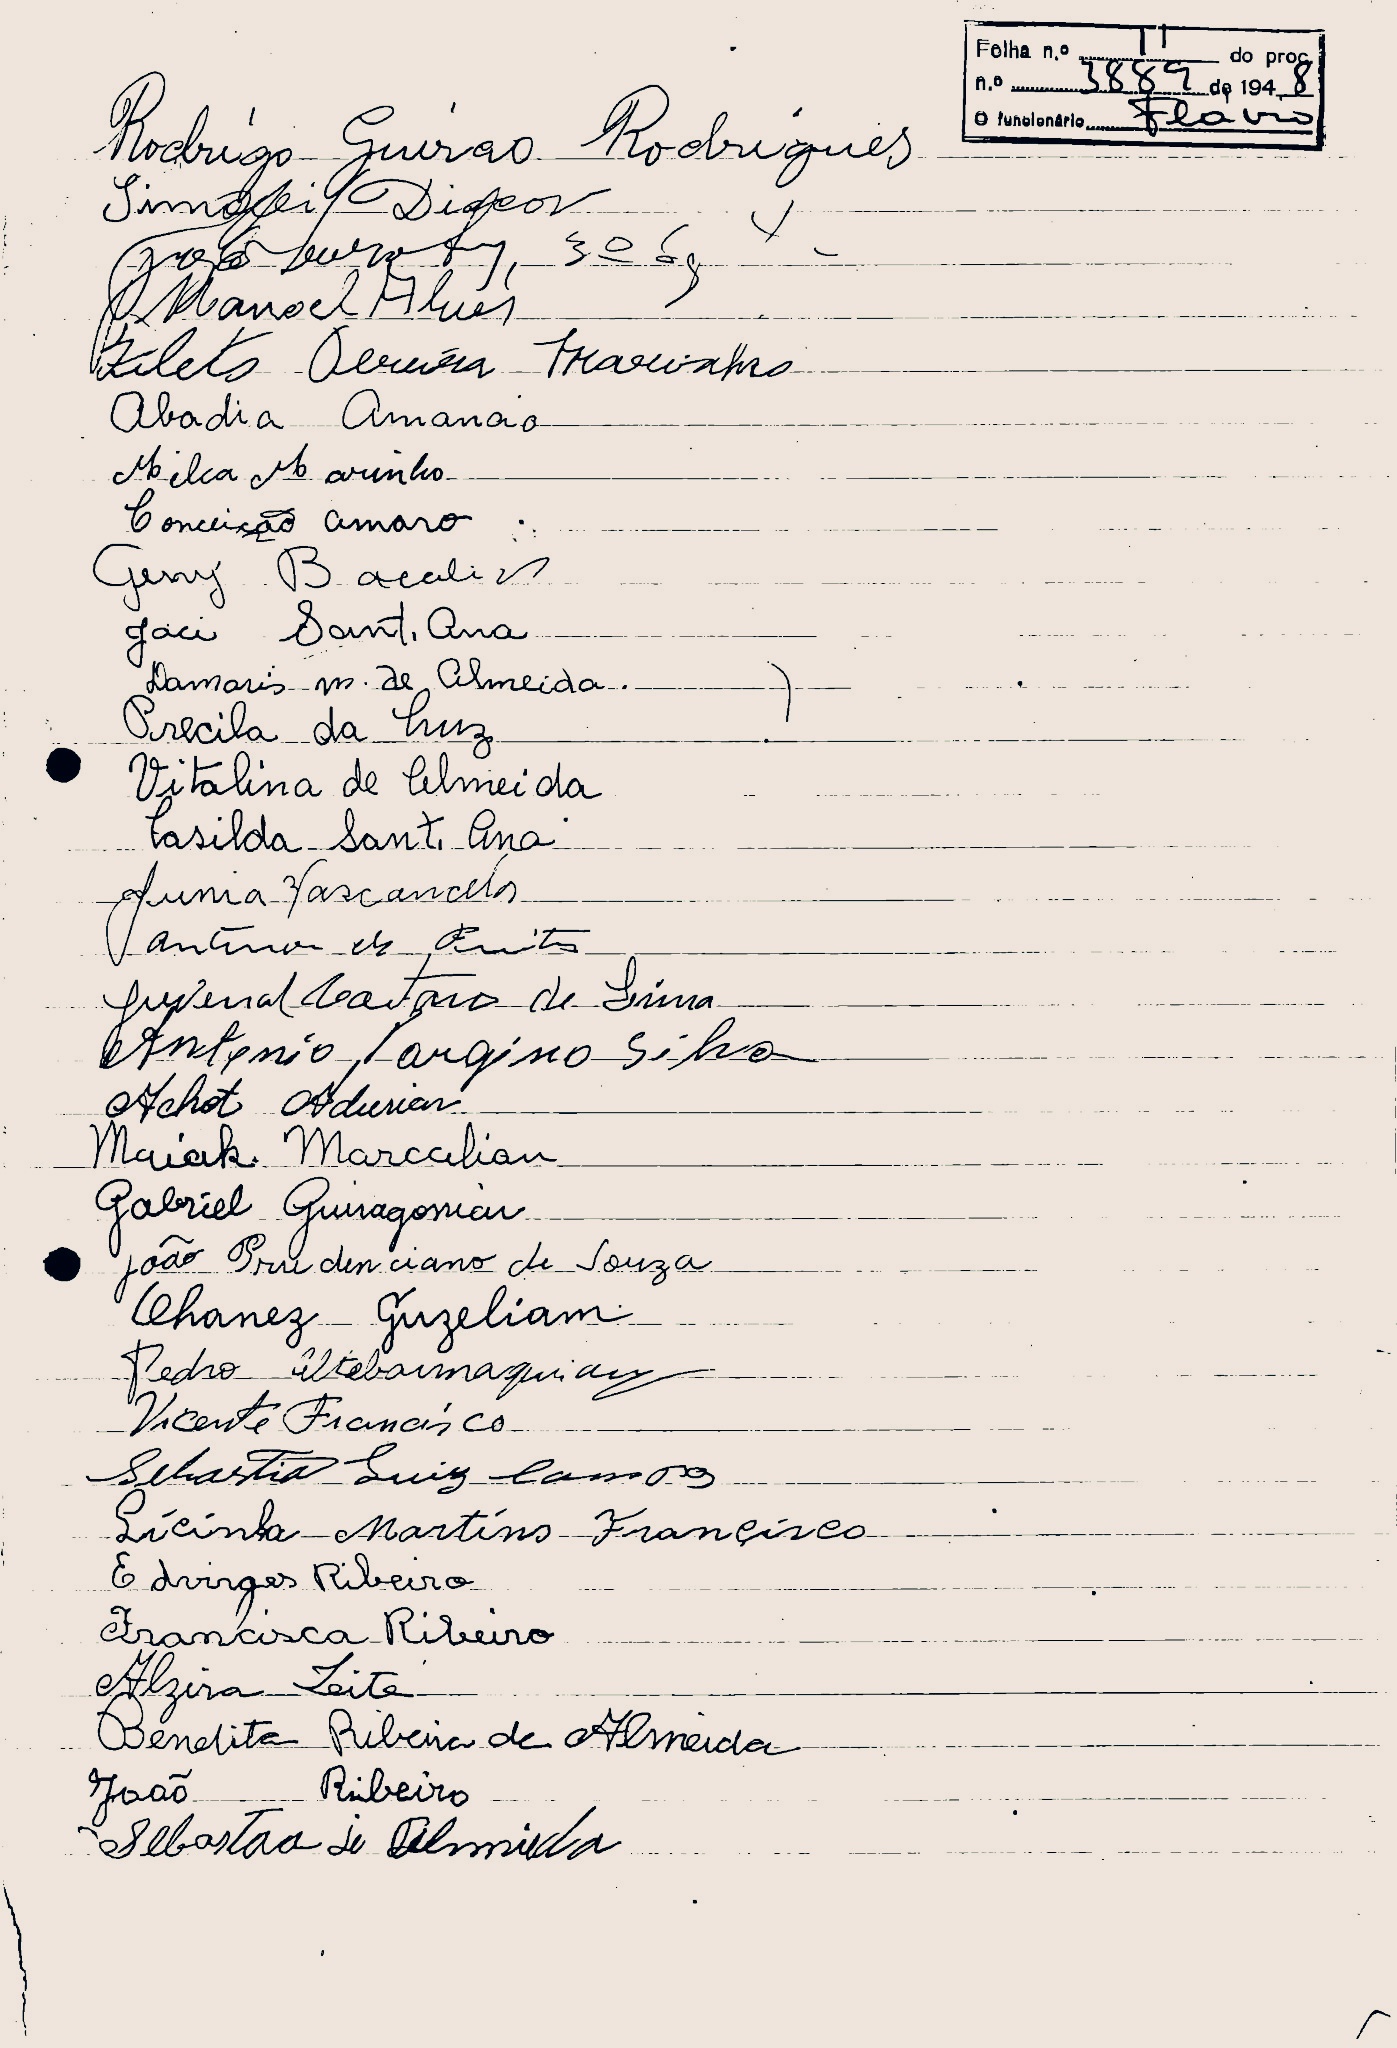 Folha n.º 11 do proc.
n.º 3889 de 1948
O funcionário Flavio
Rodrigo Guirao Rodrigues
José
Manoel Alves
Fileto Pereira Marinho
Abadia Amancio
Milca Marinho
Conceição Amaro
Geny
Jaci Sant. Ana
Damaris M. de Almeida.
Precila da Luz
Vitalina de Almeida
Casilda Sant. Ana
Junia Vasconcelos
Antenor de
Juvenal Caetano de Lima
Antonio Targino Silva
Achot Adurian
Maiak. Marcalian
Gabriel Guiragonian
João Prudenciano de Souza
Ohanez Guzeliam.
Pedro
Vicente Francisco
Sebastião Luiz Campos
Licinha Martins Francisco
Edvirges Ribeiro
Francisca Ribeiro
Alzira Leite
Bendita Ribeira de Almeida
João Ribeiro
Sebastão de Almeida